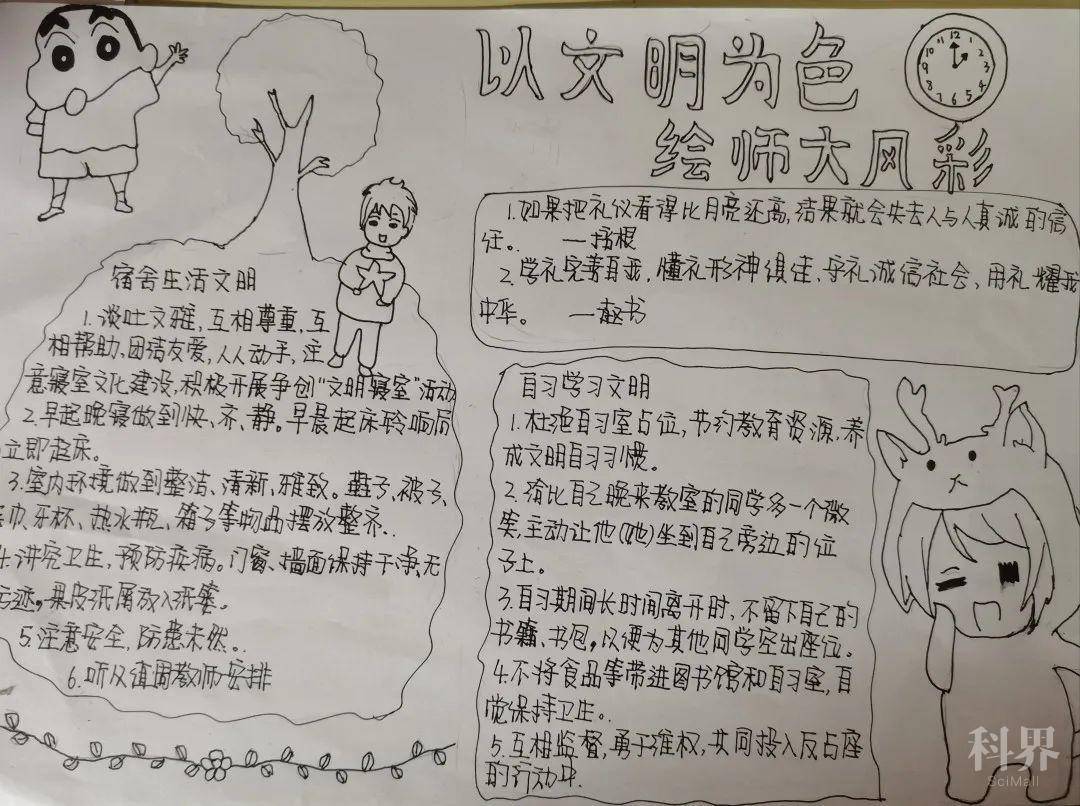 以文明为色
绘师大风彩
12 1 2 3 4 5 6 7 8 9 10 11
1.如果把礼仪看得比月亮还高,结果就会失去人与人真诚的信
任。 —培根
2.学礼完善自我,懂礼形神俱佳、守礼诚信社会、用礼耀我
中华。 —赵书
宿舍生活文明
1.谈吐文雅,互相尊重,互
相帮助、团结友爱,人人动手,注
意寝室文化建设,积极开展争创“文明寝室”活动
2.早起晚寝做到快、齐、静。早晨起床铃响后
立即起床。
3.室内环境做到整洁、清新、雅致。鞋子、被子、
巾、牙杯、热水瓶、箱子等物品摆放整齐.
4.讲究卫生,预防疾病。门窗、墙面保持干净、无
污迹,果皮纸屑放入纸篓。
5.注意安全,防患未然。
6.听从值周教师安排
自习学习文明
1.杜绝自习室占位,节约教育资源,养
成文明自习习惯。
2.给比自己晚来教室的同学多一个微
笑,主动让他(她)坐到自己旁边的位
子上。
3.自习期间长时间离开时,不留下自己的
书籍、书包,以便为其他同学空出座位。
4.不将食品等带进图书馆和自习室,自
觉保持卫生。
5.互相监督,勇于维权,共同投入反占座
的行动中.
科界
SciMall